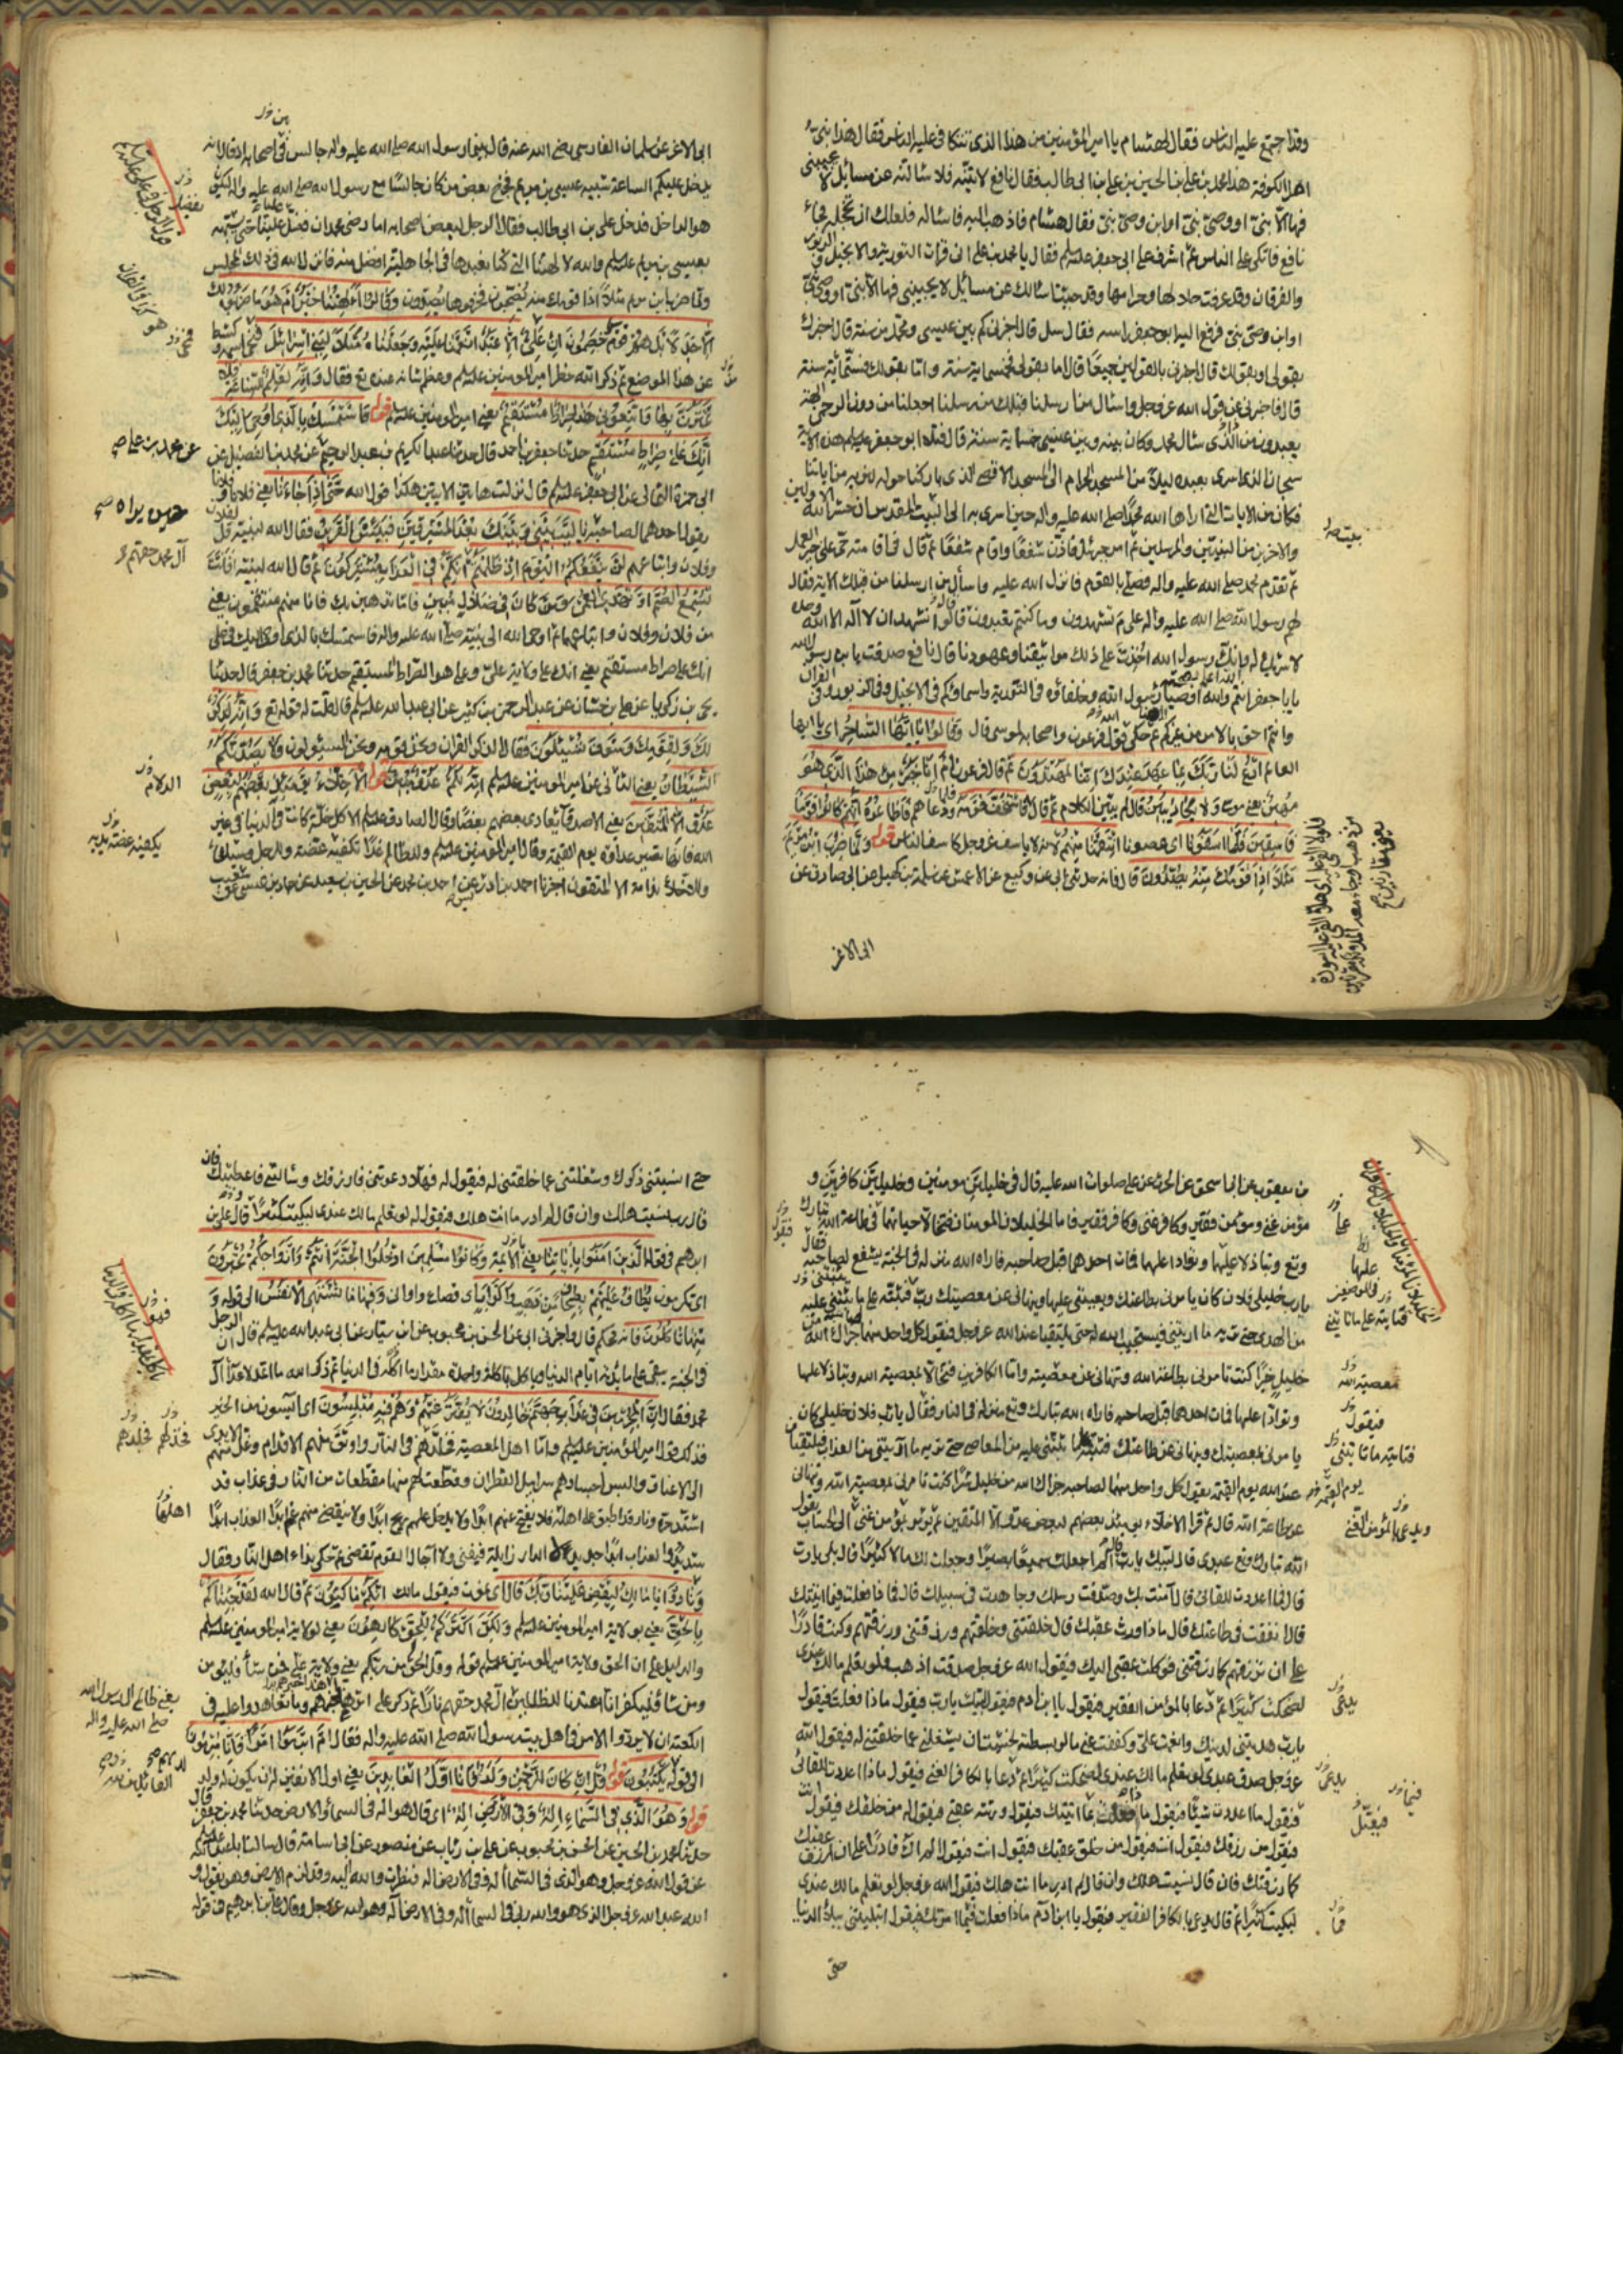 وقد اجتمع عليه الناس فقال لهشام يا امير المؤمنين من هذا الذى تتكافى عليه الناس فقال هذا نبى
اهل الكوفة هذا محمد بن على بن الحسين بن على بن ابى طالب فقال نافع لاتينه فلاسألنه عن مسائل لا يجيبنى
فيها الا نبى او وصى نبى او ابن وصى نبى فقال هشام فاذهب اليه فاسأله فلعلك ان تخجله فجاء
نافع فاتكى على الناس ثم اشرف على ابى جعفر عليلم فقال يا محمد بن على انى قرات التورية والانجيل والزبور
والفرقان وقد عرفت حلالها وحرامها وقد جئت اسالك عن مسائل لا يجيبنى فيها الا نبى او وصى نبى
او ابن وصى نبى فرفع اليه ابو جعفر راسه فقال سل قال اخبرنى كم بين عيسى ومحمد من سنة قال اخبرك
بقولى او بقولك قال اخبرنى بالقولين جميعا قال اما بقولى فخمسماية سنة واما بقولك فستماية سنة
قال فاخبرنى عن قول الله عز وجل واسال من ارسلنا قبلك من رسلنا اجعلنا من دون الرحمن الهة
يعبدون من الذى سال محمد وكان بينه وبين عيسى خمسماية سنة قال فتلا ابو جعفر عليلم هذه الاية
سبحان الذى اسرى بعبده ليلا من المسجد الحرام الى المسجد الاقصى الذى باركنا حوله لنريه من اياتنا
فكان من الايات التى اراها الله محمدا صلى الله عليه واله حين اسرى به الى البيت المقدس ان حشر الله الاولين
والاخرين من النبيين والمرسلين ثم امر جبرئيل فاذن شفعا واقام شفعا ثم قال فى اقامته حى على خير العمل
ثم تقدم محمد صلى الله عليه واله فصلى بالقوم فانزل الله عليه واسأل من ارسلنا من قبلك الاية فقال
لهم رسول الله صلى الله عليه واله على م تشهدون وما كنتم تعبدون قالوا نشهد ان لا اله الا الله وحده
لا شريك له وانك رسول الله اخذت على ذلك مواثيقنا وعهودنا قال نافع صدقت يا بن رسول الله
يابا جعفر انتم والله اوصياء رسول الله وخلفاؤه فى التورية واسماؤكم فى الانجيل وفى الزبور وفى القران
وانتم احق بالامر من غيركم ثم حكى قول فرعون واصحابه لموسى قال وقالوا يا ايها الساحر اى يا ايها
العالم ادع لنا ربك بما عهد عندك اننا لمهتدون ثم قال فرعون ام انا خير من هذا الذى هو
مهين يعنى موسى ولا يكاد يبين قال لم يبين الكلام ثم قال فاستخف قومه فلما دعاهم فاطاعوه انهم كانوا قوما
فاسقين فلما اسفونا اى عصونا انتقمنا منهم لانه لا ياسف عز وجل كاسف الناس قوله ولما ضرب ابن مريم
مثلا اذا قومك منه يصدون قال فانه حدثنى ابى عن وكيع عن الاعمش عن سلمة بن كهيل عن ابى صادق عن
ابى الاغر
ابى الاغر عن سلمان الفارسى رضى الله عنه قال بينما رسول الله صلى الله عليه واله جالس فى اصحابه اذ قال انه
يدخل عليكم الساعة شبيه عيسى بن مريم فخرج بعض من كان جالسا مع رسول الله صلى الله عليه واله ليكون
هو الداخل فدخل على بن ابى طالب فقال الرجل لبعض اصحابه اما رضى محمد ان فضل علينا عليا حتى يشبهه
بعيسى بن مريم عليلم والله لالهتنا التى كنا نعبدها فى الجاهلية افضل منه فانزل الله فى ذلك المجلس
ولما ضرب ابن مريم مثلا اذا قومك منه يضجون فحرفوها يصدون وقالوا االهتنا خير ام هو ما ضربوه لك
الا جدلا بل هم قوم خصمون ان على الا عبد انعمنا عليه وجعلناه مثلا لبنى اسرائيل فمحى اسمه وكشط
عن هذا الموضع ثم ذكر الله خطر امير المومنين عليلم وعظم شانه عنده تع فقال وانه لعلم للساعة فلا
تمترن بها واتبعون هذا صراط مستقيم يعنى امير المومنين عليلم قوله فاستمسك بالذى اوحى اليك
انك على صراط مستقيم حدثنا جعفر بن احمد قال حدثنا عبد الكريم بن عبد الرحيم عن محمد بن الفضيل عن
ابى حمزة الثمالى عن ابى جعفر عليلم قال نزلت هاتين الايتين هكذا قول الله حتى اذا جاءنا يعنى فلانا وفلانا
يقول احدهما لصاحبه يا ليت بينى وبينك بعد المشرقين فبئس القرين فقال الله لنبيه قل لفلان
وفلان واتباعهم لن ينفعكم اليوم اذ ظلمتم انكم فى العذاب مشتركون ثم قال الله لنبيه افانت
تسمع الصم او تهدى العمى ومن كان فى ضلال مبين فاما نذهبن بك فانا منهم منتقمون يعنى
من فلان وفلان واتباعهما ثم اوحى الله الى نبيه صلى الله عليه واله فاستمسك بالذى اوحى اليك فى على
انك على صراط مستقيم يعنى انك على ولاية على وعلى هو الصراط المستقيم حدثنا محمد بن جعفر قال حدثنا
يحيى بن زكريا عن على بن حسان عن عبد الرحمن بن كثير عن ابى عبد الله عليلم قال قلت له قوله تع وانه لذكر
لك ولقومك وسوف تسئلون فقال الذكر القران ونحن قومه ونحن المسئولون ولا يصدنكم
الشيطان يعنى الثانى عن امير المومنين عليلم انه لكم عدو مبين قوله الاخلاء يومئذ بعضهم لبعض
عدو الا المتقين يعنى الاصدقاء يعادى بعضهم بعضا وقال الصادق عليلم الا كل خلة كانت فى الدنيا فى غير
الله فانها تصير عداوة يوم القيمة وقال امير المومنين عليلم وللظالم غدا بكفيه عضة وللرجل وشيك
وللاخلاء ندامة الا المتقون اخبرنا احمد بن ادريس عن احمد بن محمد عن الحسين بن سعيد عن حماد بن عيسى عن شعيب
عن محمد بن على صح
آل محمد حقهم
يكفيه عضة يديه
بن يعقوب عن ابى اسحق عن الحرث عن على صلوات الله عليه قال فى خليلين مومنين وخليلين كافرين و
مؤمن غنى ومومن فقير وكافر غنى وكافر فقير فاما الخليلان المومنان فتخالا حياتهما فى طاعة الله تبارك
وتع وتباذلا عليها وتوادا عليها فمات احدهما قبل صاحبه فاراه الله منزله فى الجنة يشفع لصاحبه فقال
يارب خليلى فلان كان يامرنى بطاعتك ويعيننى عليها وينهانى عن معصيتك رب فثبته على ما ثبتنى عليه
من الهدى حتى تريه ما اريتنى فيستجيب الله له حتى يلتقيا عند الله عز وجل فيقول كل واحد منهما لصاحبه جزاك الله من
خليل خيرا كنت تامرنى بطاعة الله وتنهانى عن معصيته واما الكافرين فتخالا بمعصية الله وتباذلا عليها
وتوادا عليها فمات احدهما قبل صاحبه فاراه الله تبارك وتع منزله فى النار فقال يارب فلان خليلى كان
يامرنى بمعصيتك وينهانى عن طاعتك فثبته على ما ثبتنى عليه من المعاصى حتى تريه ما آريتنى من العذاب فيلتقيان
عند الله يوم القيمة يقول كل واحد منهما لصاحبه جزاك الله من خليل شرا كنت تامرنى بمعصية الله وتنهانى
عن طاعة الله قال ثم قرا الاخلاء يومئذ بعضهم لبعض عدو الا المتقين ثم يؤمر بمؤمن غنى الى الحساب يقول
الله تبارك وتع عبدى قال لبيك يارب قال الم اجعلك سميعا بصيرا وجعلت لك مالا كثيرا قال بلى يارب
قال فما اعددت للقائى قال آمنت بك وصدقت رسلك وجاهدت فى سبيلك قال فماذا فعلت فيما اتيتك
قال انفقت فى طاعتك قال ماذا اورثت عقبك قال خلقتنى وخلقتهم ورزقتنى ورزقتهم وكنت قادرا
على ان ترزقهم كما رزقتنى فوكلت عقبى اليك فيقول الله عز وجل صدقت اذهب فلو تعلم مالك عندى
لضحكت كثيرا ثم دعا بالمؤمن الفقير فيقول يا ابن ادم فيقول لبيك يارب فيقول ماذا فعلت فيقول
يارب هديتنى لدينك وانعمت على وكففت عنى ما لو بسطته لخشيت ان يشغلنى عما خلقتنى له فيقول الله
عز وجل صدق عبدى لو تعلم مالك عندى لضحكت كثيرا ثم دعا بالكافر الغنى فيقول ماذا اعددت للقائى
فيقول ما اعددت شيئا فيقول ماذا فعلت فيما اتيتك فيقول ورثته عقبى فيقول له من خلقك فيقول انت
فيقول من رزقك فيقول انت فيقول من خلق عقبك فيقول انت فيقول الم اك قادرا على ان ارزق عقبك
كما رزقتك فان قال نسيت هلك وان قال لم ادر ما انت هلك فيقول الله عز وجل لو تعلم مالك عندى
لبكيت كثيرا ثم قال يدعى بالكافر الفقير فيقول يا ابن آدم ماذا فعلت فيما امرتك فيقول ابتليتنى ببلاء الدنيا
حتى
معصية الله
فيقول
حتى انسيتنى ذكرك وشغلتنى عما خلقتنى له فيقول له فهلا دعوتنى فارزقك وسالتنى فاعطيتك فان
قال رب نسيت هلك وان قال لم ادر ما انت هلك فيقول له لو تعلم مالك عندى لبكيت كثيرا وقال على بن
ابراهيم فى قوله الذين امنوا باياتنا يعنى الائمة وكانوا مسلمين ادخلوا الجنة انتم وازواجكم تحبرون
اى تكرمون يطاف عليهم بصحاف من ذهب واكواب اى قصاع واوانى وفيها ما تشتهى الانفس الى قوله
منها تاكلون فانه محكم قال واخبرنى ابى عن الحسن بن محبوب عن ابن سيار عن ابى عبد الله عليلم قال ان الرجل
فى الجنة يبقى على مائدته ايام الدنيا وياكل فى اكلة واحدة مقدار ما اكله فى الدنيا ثم ذكر الله ما اعد لاعداء آل
محمد فقال ان المجرمين فى عذاب جهنم خالدون لا يفتر عنهم وهم فيه مبلسون اى آيسون من الخير
فذلك قول امير المؤمنين عليلم واما اهل المعصية فخلدهم فى النار واوثق منهم الاقدام وغل منهم الايدى
الى الاعناق والبس اجسادهم سرابيل القطران وقطعت لهم منها مقطعات من النار فى عذاب قد
اشتد حره ونار قد اطبق على اهلها فلا يفتح عنهم ابدا ولا يدخل عليهم ريح ابدا ولا ينقضى منهم غم ابدا العذاب ابدا
شديد والعذاب ابدا جديد لا الدار زايلة فيفنى ولا آجال القوم تقضى ثم حكى نداء اهل النار فقال
ونادوا يا مالك ليقض علينا ربك قال اى نموت فيقول مالك انكم ماكثون ثم قال الله لقد جئناكم
بالحق يعنى بولاية امير المومنين عليلم ولكن اكثركم للحق كارهون يعنى لولاية امير المومنين عليلم
والدليل على ان الحق ولاية امير المومنين عليلم قوله وقل الحق من ربكم يعنى ولاية على فمن شأ فليومن
ومن شاء فليكفر انا اعتدنا للظالمين آل محمد حقهم نارا ثم ذكر على اثر هذا خبرهم وما تعاهدوا عليه فى
الكعبة ان لا يردوا الامر فى اهل بيت رسول الله صلى الله عليه واله فقال ام ابرموا امرا فانا مبرمون
الى قوله يكتبون قوله قل ان كان للرحمن ولد فانا اول العابدين يعنى اول الانفين له ان يكون له ولد
قوله وهو الذى فى السماء اله وفى الارض اله قال هو اله فى السماء والارض حدثنا محمد بن جعفر قال
حدثنا محمد بن الحسين عن الحسن بن محبوب عن على بن رئاب عن منصور عن ابى اسامة قال سالت ابا عبد الله عليلم
عن قول الله عز وجل وهو الذى فى السماء اله وفى الارض اله فنظرت والله اليه وقد لزم الارض وهو يقول و
الله عبد الله عز وجل الذى هو والله ربى فى السماء اله وفى الارض اله وهو الله عز وجل وقال على بن ابرهيم فى قوله